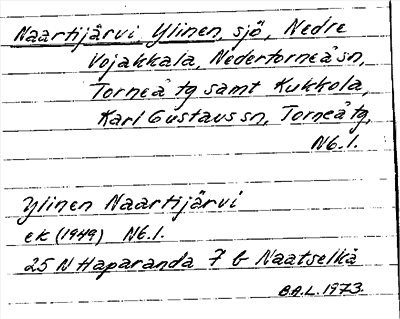 Naartijärvi Ylinen, sjö, Nedre
Vojakkala, Nedertorneå sn,
Torneå tg samt Kukkola,
Karl Gustavs sn, Torneå tg,
Nb.l.
Ylinen Naartijärvi
ek (1949) Nb.l.
25 N Haparanda 7 b Naatselkä
B.A.L. 1973